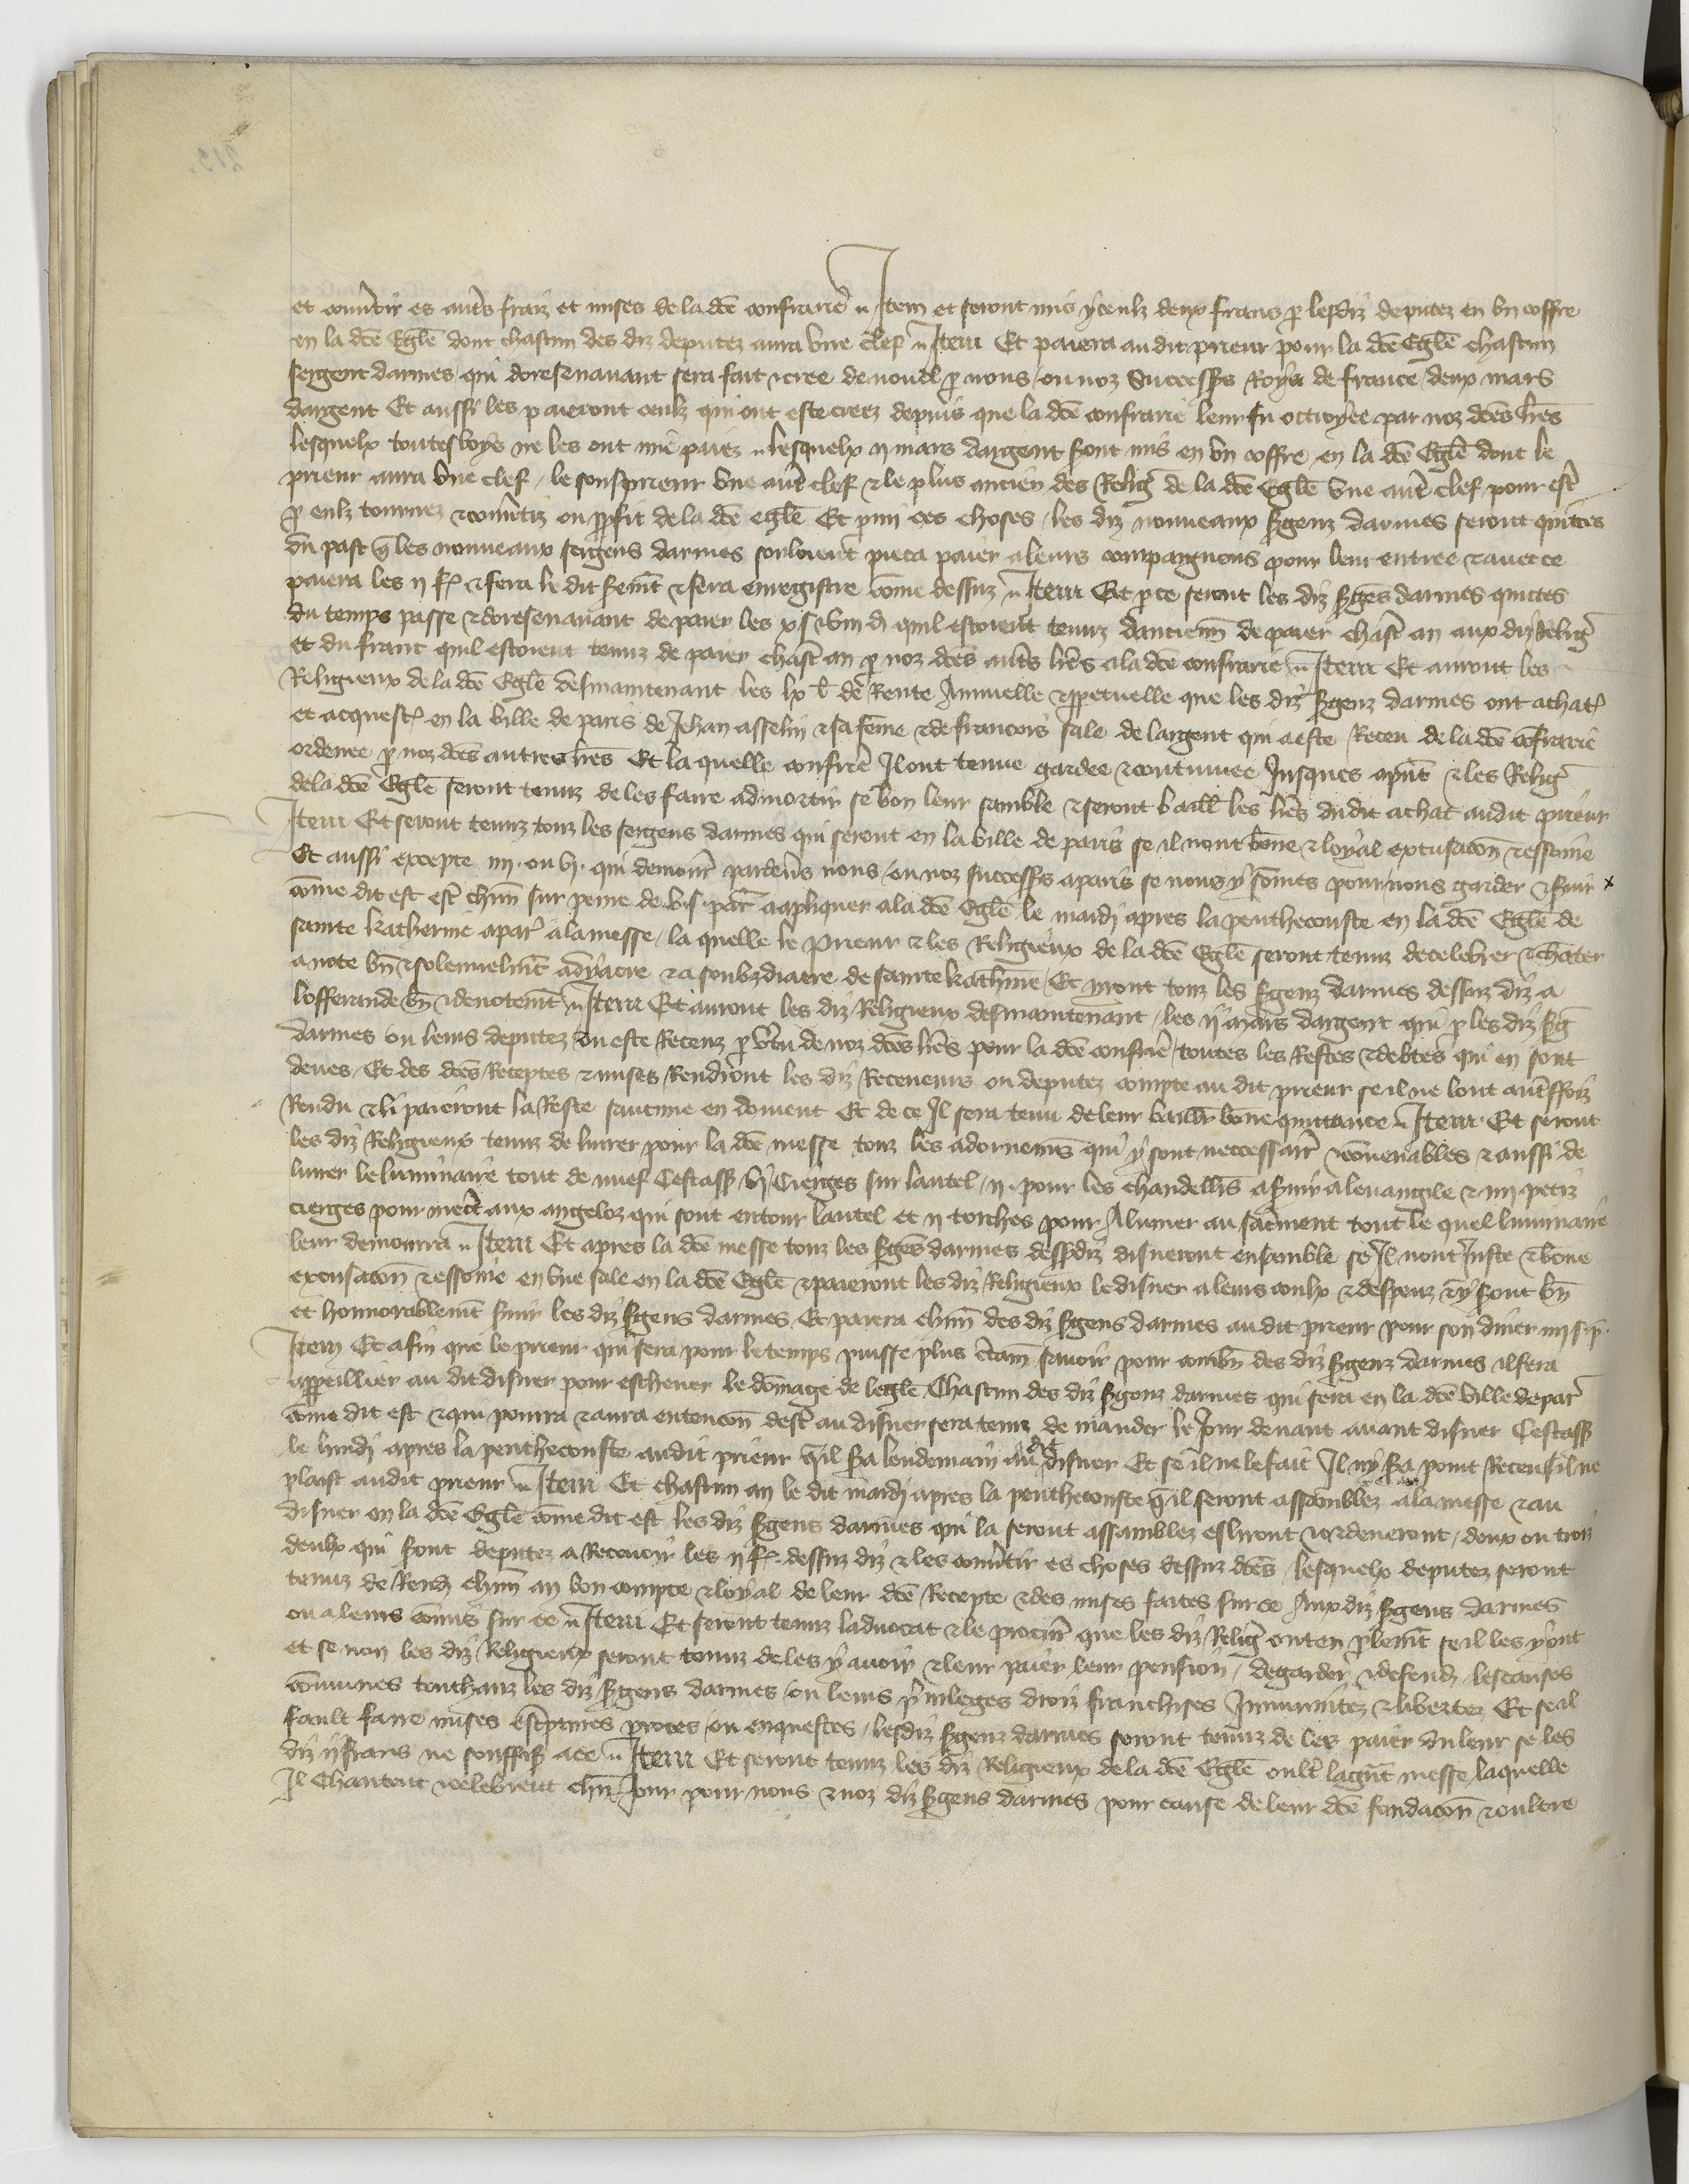 et convertir es autres fraiz et mises de la dce confrarie Item et seront mis yceulx deux frans p lesdiz deputez en un coffre
en la dce Egle dont chascun des diz deputez aura une clef Item Et paiera audit prieur pour la dce Egle chascun
sergent darmes qui doresenavant sera fait et cree de nouvel p nous ou noz Successrs Roys de france deux mars
dargent Et aussi les paieront ceulx qui ont este creez depuis que la dce confrarie leur fu octroyee par noz dces lres
lesquelx toutesvoyes ne les ont mie paiez lesquelx ij mars dargent seront mis en un coffre en la dce Egle dont le
prieur aura une clef le souspprieur une autre clef et le plus ancien des Relig de la dce Egle une autre clef pour estre
p eulx tournez et convertiz ou proffit de la dce egle Et parmi ces choses les diz nouveaux sergenz darmes seront quittes
du past que les nouveaux sergens darmes souloient pieca paier a leurs compaignons pour leur entree et avec ce
paiera les ij fr et fera le dit serement et sera enregistre come dessuz Item Et p ce seront les diz sergens darmes quictes
du temps passe et doresenavant de paier les x s et viij d quil estoient tenuz danciennete de paier chascun an aux diz Relig
et du franc quil estoient tenuz de paier chascun an p noz dces autres lres a la dce confrarie Item Et auront les
Religieux de la dce Egle desmaintenant les lx l de Rente Annuelle et ppetuelle que les diz sergenz darmes ont achat
et acquest en la ville de paris de Jehan asselin et sa feme et de francois sale de largent qui a este Receu de la dce cofrarie
ordenee p noz dces autres lres Et la quelle confrarie Il ont tenue gardee et continuee Jusques apnt et les Relig
de la dce Egle seront tenuz de les faire admortir se bon leur samble et seront baill les lres dudit achat audit prieur
Item Et seront tenuz touz les sergens darmes qui seront en la ville de paris se il nont bone et loyal excusacon et essoine
Et aussi excepte iiij ou vj qui demourr pardevs nous ou noz successrs a paris se nous y somes pour nous garder et servir
come dit est estre chun sur peine de v s par a apliquer a la dce Egle le mardi apres la penthecouste en la dce Egle de
sainte katherine a par a la messe la quelle le Prieur et les Religieux de la dce Egle seront tenuz de celebrer et chanter
a note bn et solennelmt a dyacre et a soubzdiacre de sainte kathine Et yront touz les sergenz darmes dessuz diz a
lofferande bn et devotemt Item Et auront les diz Religieux desmaintenant les ij mars dargent qui p les diz serg
darmes ou leurs deputez ou este Receuz p vertu de noz dces lres pour la dce confrie toutes les Restes et debtes qui en sont
deues Et des dces Receptes et mises Rendront les diz Receveurs ou deputez compte au dit prieur se il ne lont autresfoiz
Rendu et li paieront la Reste saucune en doivent Et de ce Il sera tenu de leur baillr bone quittance Item Et seront
les diz Religieux tenuz de livrer pour la dce messe touz les adornemens qui y sont neccessair et covenables et aussi de
livrer le luminaire tout de nuef Cestass vj Cierges sur lautel ij pour les chandellrs a servir a levangile et iiij petiz
cierges pour mectre aux angeloz qui sont entour lautel et ij torches pour Alumer au sacrement tout le quel luminaire
leur demourra Item Et apres la dce messe touz les sergens darmes dessusdiz disneront ensamble se Il nont Juste et bone
excusacon et essoine en une sale en la dce Egle et paieront les diz Religieux le disner a leurs coulx et despenz et y feront bn
et honnorablemt servir les diz sergens darmes Et paiera chun des diz sergens darmes au dit prieur pour son diner iiij s p
Item Et afin que le prieur qui sera pour le temps puisse plus certain savoir pour combn des diz sergenz darmes il fera
appeillier au dit disner pour eschever le domage de legle Chascun des diz sergenz darmes qui sera en la dce ville de par
come dit est et qui pourra et aura entencon destre au disner sera tenuz de mander le Jour devant avant disner Cestass
le lundi apres la penthecouste audit prieur quil sera lendemain au dit disner Et se il ne le fait Il ny sera point Receu sil ne
plaist audit prieur Item Et chascun an le dit mardi apres la penthecouste quil seront assamblez a la messe et au
disner en la dce Egle come dit est les diz sergens darmes qui la seront assamblez esliront et ordeneront deux ou trois
deulx qui seront deputez a Recevoir les ij fr dessuz diz et les convertir es choses dessuz dces lesquelx deputez seront
tenuz de Rendre chun an bon compte et loyal de leur dce Recepte et des mises faites sur ce Aux diz sergens darmes
ou a leurs comis sur ce Item Et seront tenuz ladvocat et le procurr que les diz Relig ont en plemt se il les y ont
et se non les diz Religieux seront tenuz de les y avoir et leur paier leur pension de garder et defendre les causes
comunes touchanz les diz sergens darmes ou leurs privileges droiz franchises Immunitez et libertez Et se il
fault faire mises escriptures proces ou enquestes lesdiz sergenz darmes seront tenuz de les paier du leur se les
diz ij frans ne souffis a ce Item Et seront tenuz les diz Religieux de la dce Egle oultre la gnt messe laquelle
Il Chantent et celebrent chun Jour pour nous et noz diz sergens darmes pour cause de leur dce fundacon et oultre